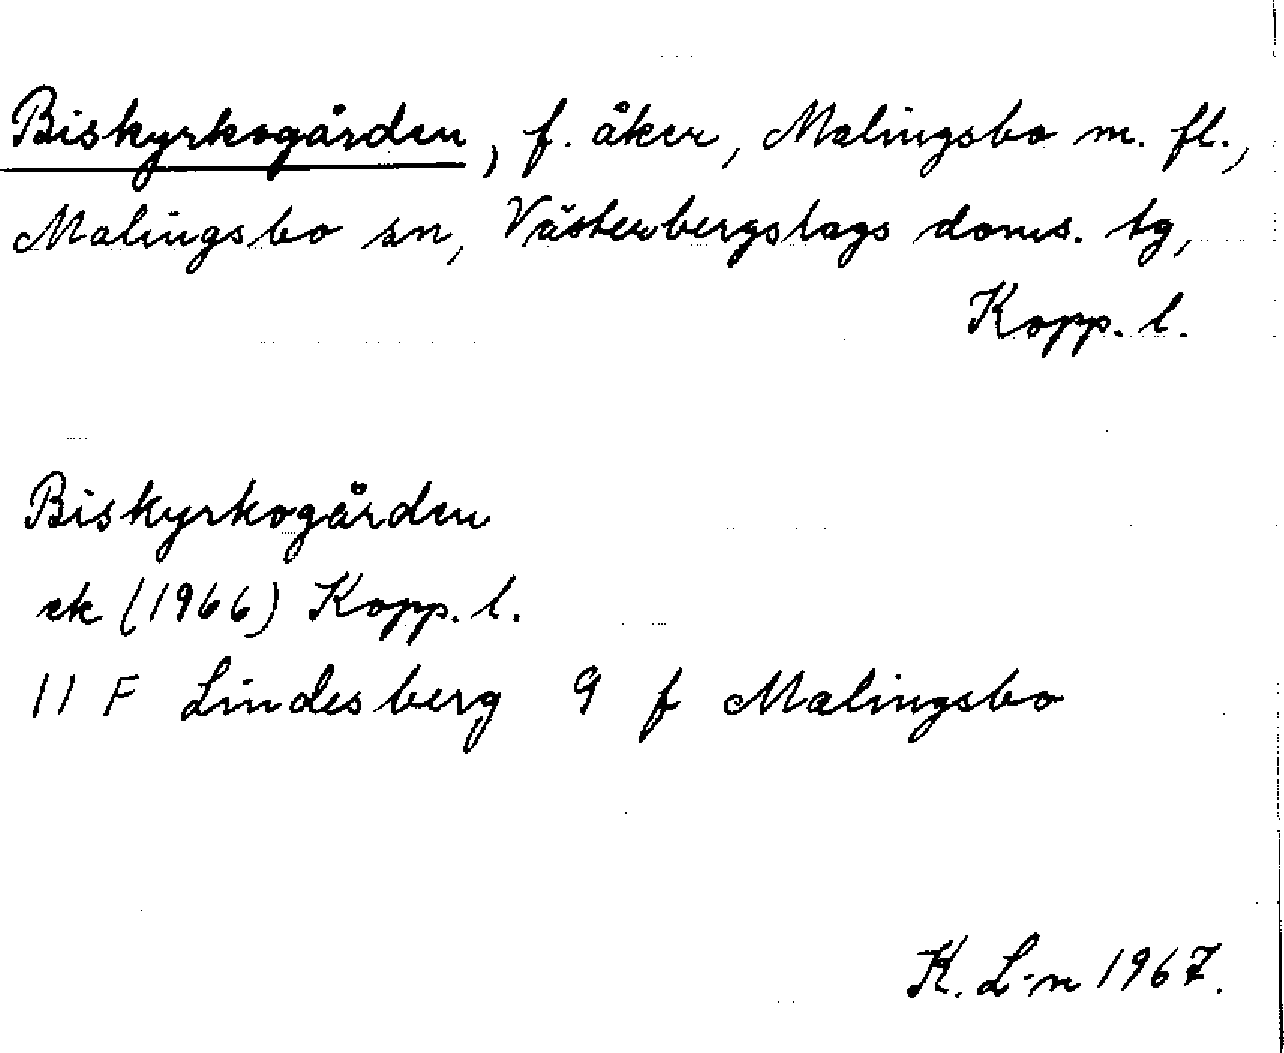 Biskyrkogården, f. åker, Malingsbo m. fl.,
Malingsbo sn, Västerbergslags doms. tg,
Kopp. l.
Biskyrkogården
ek (1966) Kopp. l.
11 F Lindesberg 9 f Malingsbo
K. L-n 1967.